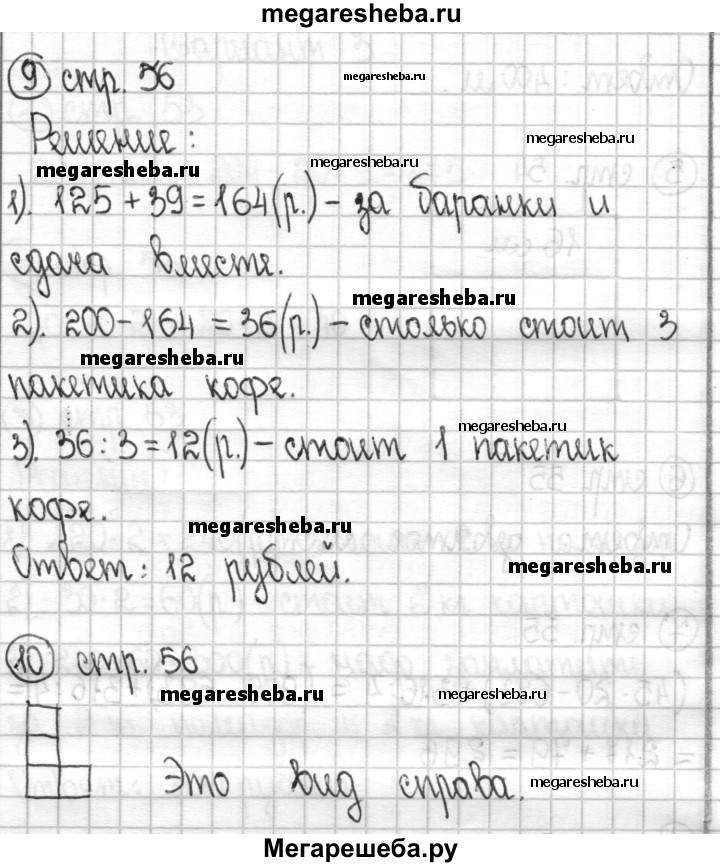 megaresheba.ru
9 стр. 56
megaresheba.ru
Решение:
megaresheba.ru
megaresheba.ru
megaresheba.ru
1). 125 + 39 = 164 (р.) - за баранки и
сдача вместе.
megaresheba.ru
2). 200 - 164 = 36 (р.) - столько стоит 3
megaresheba.ru
пакетика кофе.
megaresheba.ru
3). 36 : 3 = 12 (р.) - стоит 1 пакетик
кофе.
megaresheba.ru
Ответ: 12 рублей.
megaresheba.ru
10 стр. 56
megaresheba.ru
megaresheba.ru
Это вид справа.
megaresheba.ru
Мегарешеба.ру